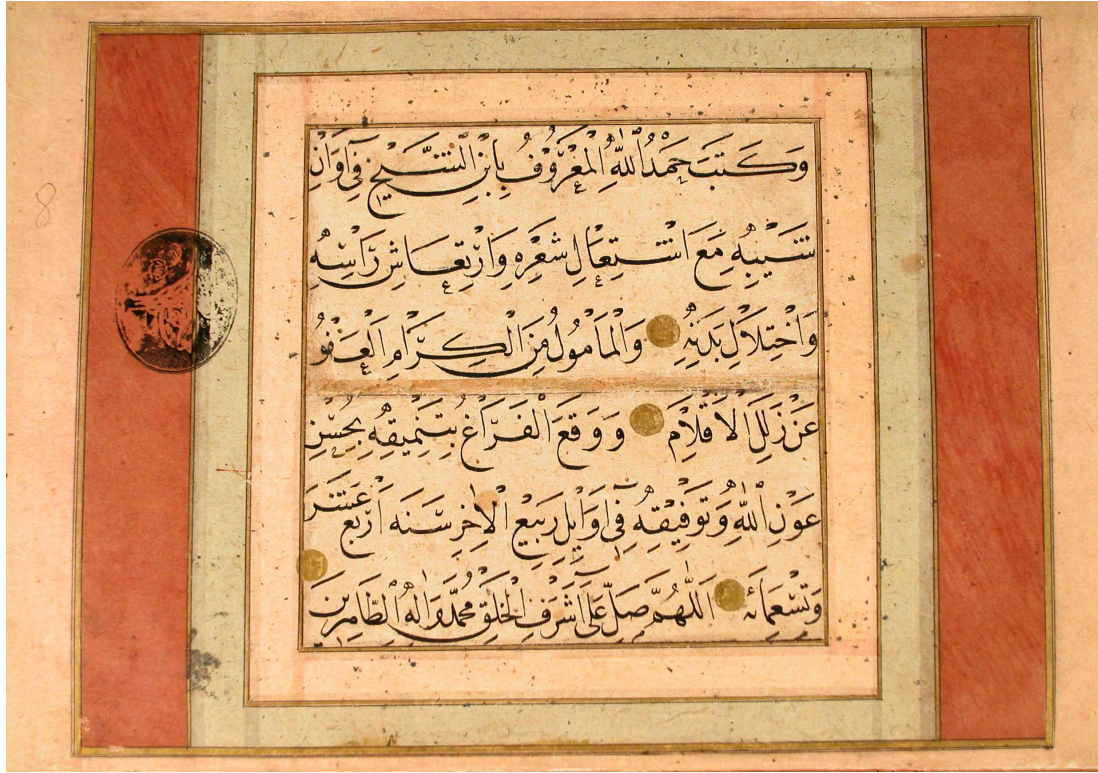 وَكَتَبَ حَمْدُ ٱللّٰهِ الْمَعْرُوفُ بِابْنِ الشَّيْخِ فِي أَوَانِ
شَيْبِهِ مَعَ اشْتِعَالِ شَعْرِهِ وَارْتِعَاشِ رَاسِهِ
وَاخْتِلَالِ بَدَنِهِ وَالْمَأْمُولُ مِنَ الْكِرَامِ الْعَفْوُ
عَنْ زَلَلِ الْاَقْلَامِ وَوَقَعَ الْفَرَاغُ بِتَنْمِيقِهِ بِحُسْنِ
عَوْنِ ٱللّٰهِ وَتَوْفِيقِهِ فِي اَوَايِلِ رَبِيعِ الْاٰخِرِ سَنَه اَرْبَع عَشَرَ
وَتِسْعِمِائَه اَللّٰهُمَّ صَلِّ عَلَى اَشْرَفِ الْخَلْقِ مُحَمَّدٍ وَاٰلِهِ الطَّاهِرِينَ
8